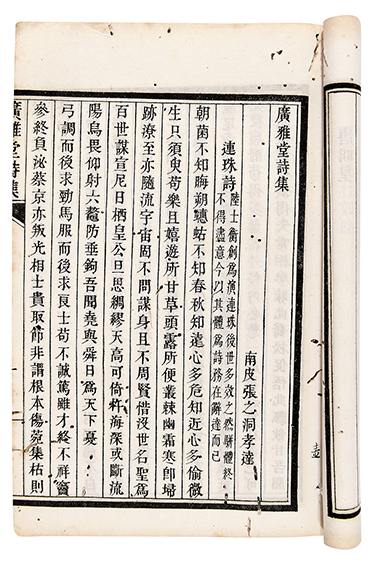 廣雅堂詩集
南皮張之洞孝達
連珠詩
陸士衡創爲演連珠後世多效之然駢體終
不得盡意今以其體爲詩務在辭達而已
朝菌不知晦朔蟪蛄不知春秋知遠心多危知近心多偷微
生只須臾苟樂且嬉遊所甘草頭露所便叢棘幽霜寒卽埽
跡潦至亦隨流宇宙固不問謀身且不周賢惜沒世名聖爲
百世謀宣尼日栖皇公旦思綢繆天高可倚杵海深或斷流
陽烏畏仰射六鼇防垂鉤吾聞堯與舜日爲天下憂
弓調而後求勁馬服而後求良士苟不誠篤雖才終不祥竇
參終負泌蔡京亦叛光相士貴取節非謂根本傷菀集枯則
廣雅堂詩集